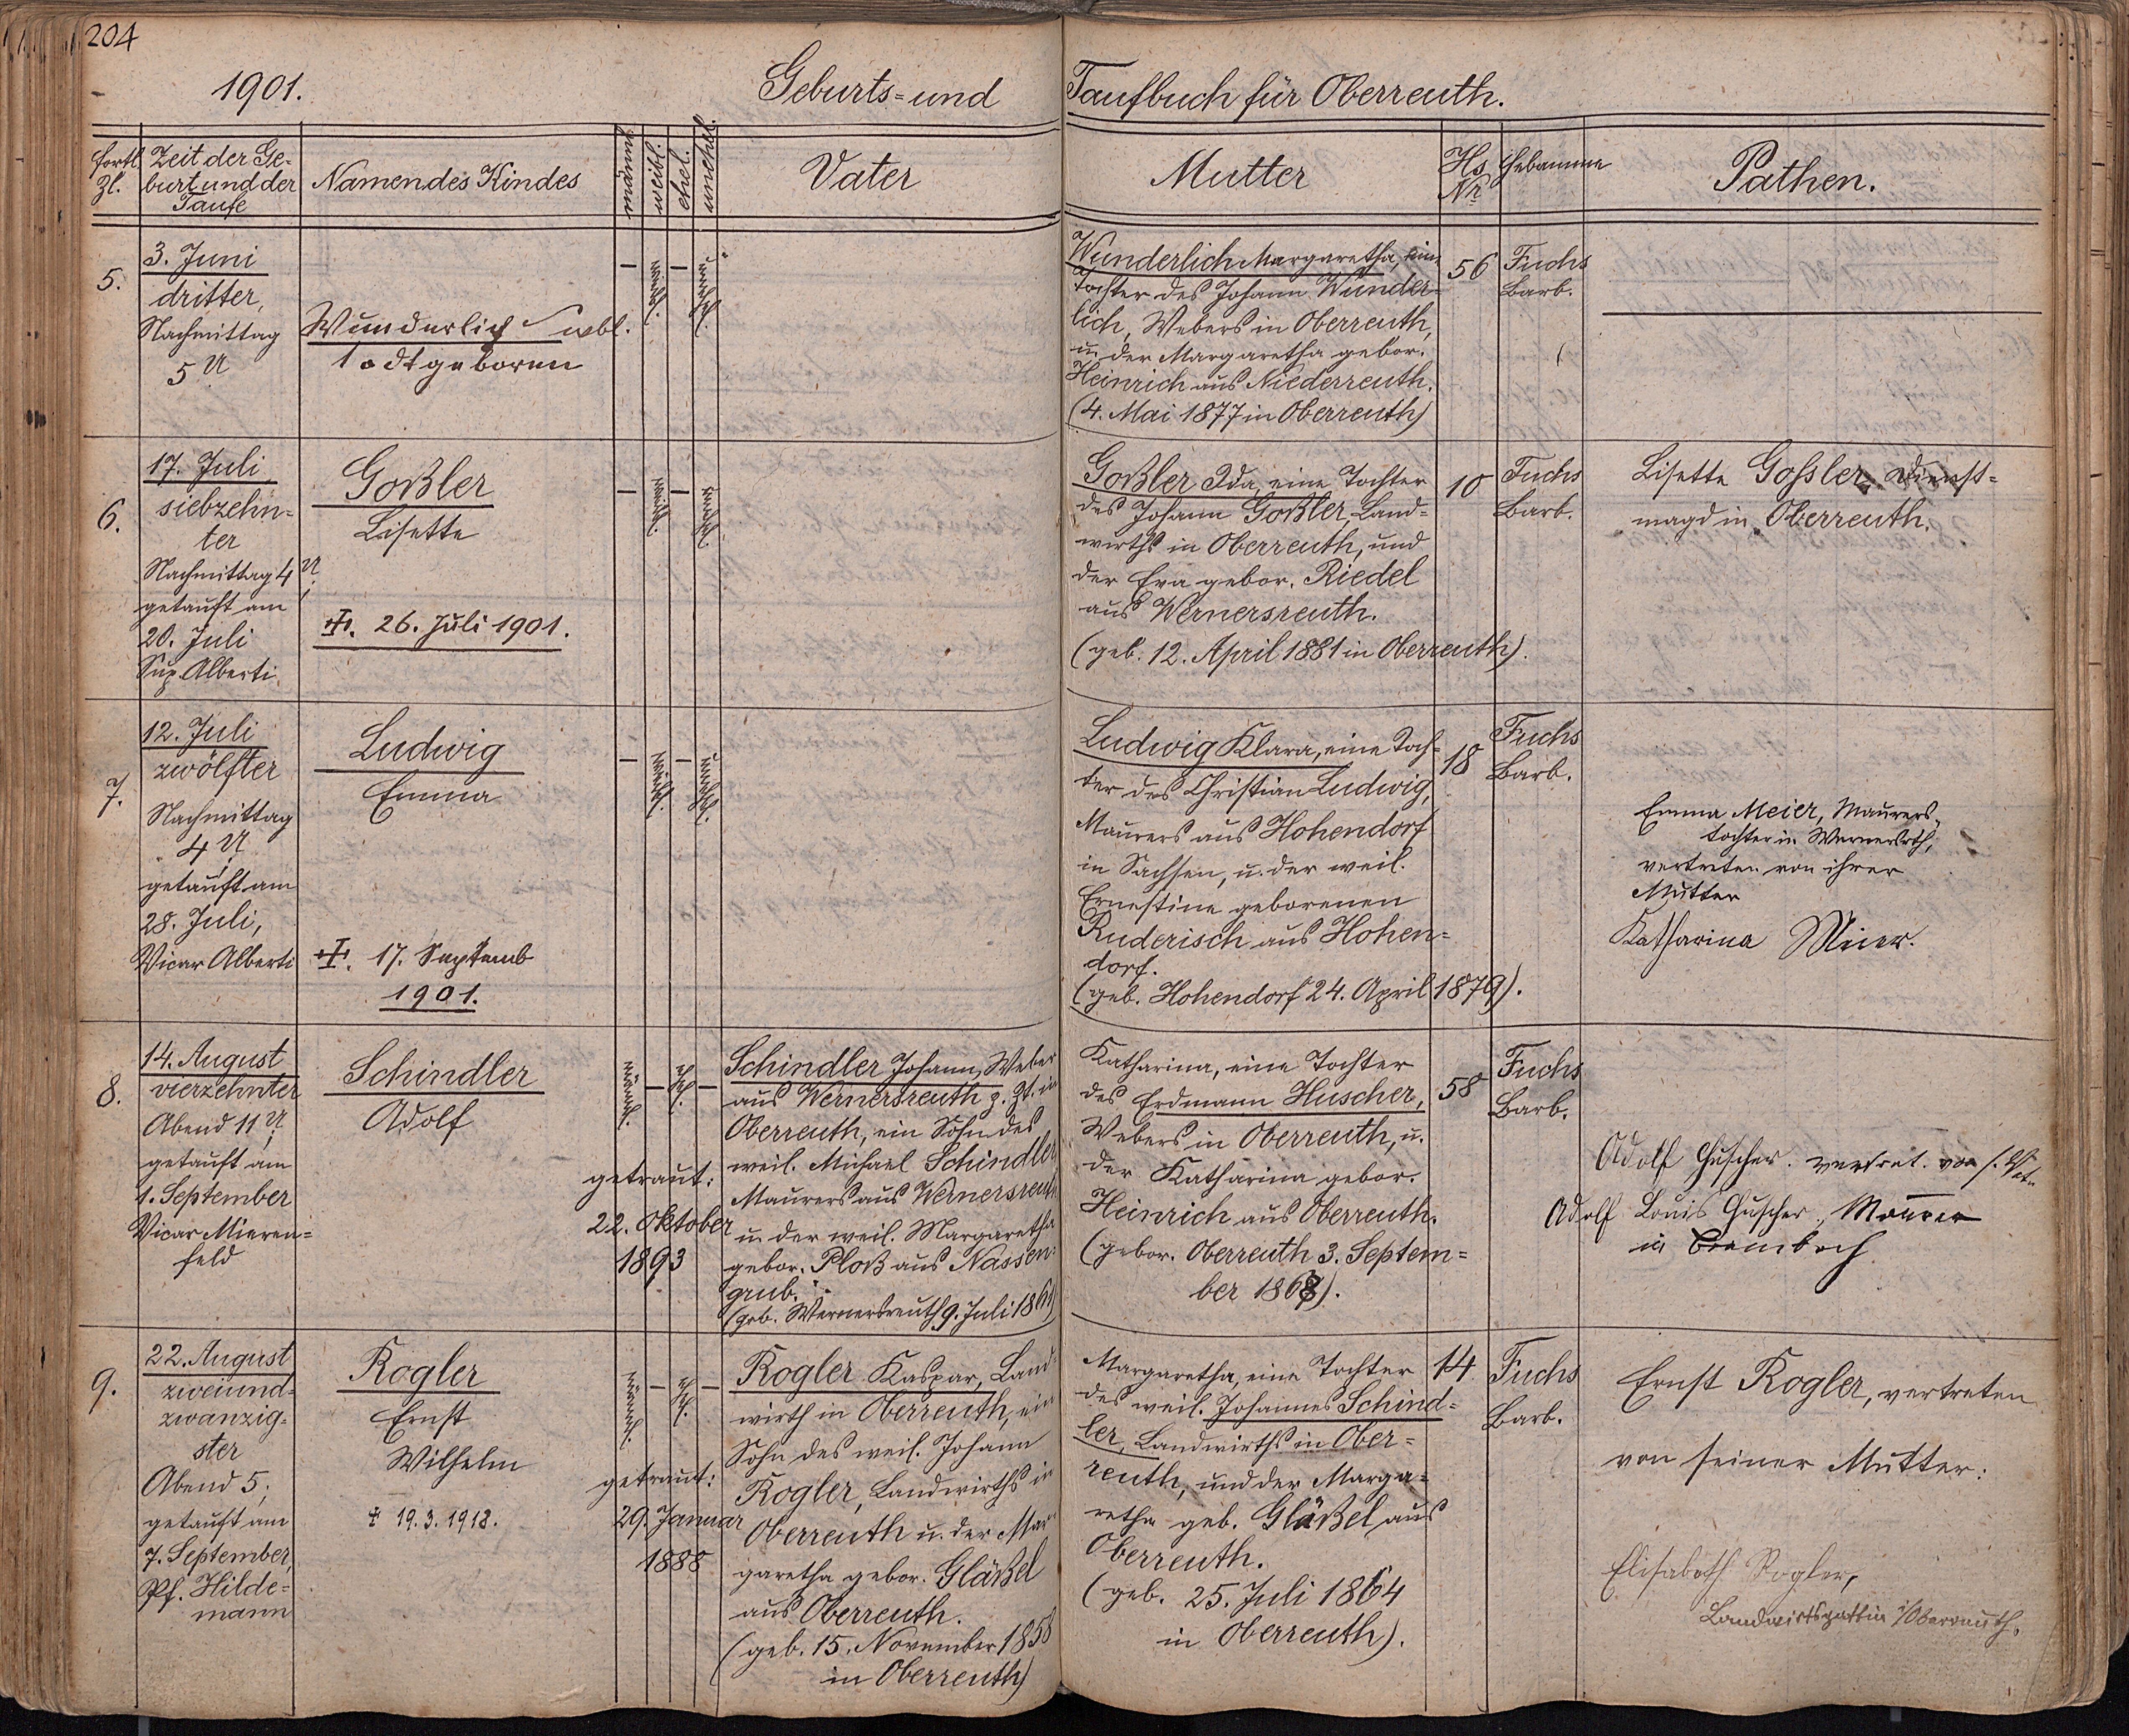 204
1901.
Geburts- und Taufbuch für Oberreuth.
fortl. Zl.
Zeit der Ge-
burt und der
Taufe
Namen des Kindes
männl.
weibl.
ehel.
unehel.
Vater
Mutter
Hs Nr
Hebamme
Pathen.
5.
3. Juni
dritter,
Nachmittag
5 U
Wunderlich wbl.
todtgeboren
—
weibl.
—
unehel.
Wunderlich Margaretha, eine
Tochter des Johann Wunder-
lich, Webers in Oberreuth,
u. der Margaretha gebor.
Heinrich aus Niederreuth.
(4. Mai 1877 in Oberreuth)
56
Fuchs
Barb.
6.
17. Juli
siebzehn-
ter
Nachmittag 4 U
getauft am
20. Juli
Sup. Alberti.
Goßler
Lisette
26. Juli 1901.
—
weibl.
—
unehel.
Goßler Ida, eine Tochter
des Johann Goßler, Land-
wirths in Oberreuth, und
der Eva gebor. Riedel
aus Wernersreuth.
(geb. 12. April 1881 in Oberreuth).
10
Fuchs
Barb.
Lisette Gossler, Dienst-
magd in Oberreuth.
7.
12. Juli
zwölfter
Nachmittag
4 U
getauft am
28. Juli,
Vicar Alberti
Ludwig
Emma
17. Septemb
1901.
—
weibl.
—
unehel.
Ludwig Klara, eine Toch-
ter des Christian Ludwig,
Maurers aus Hohendorf
in Sachsen, u. der weil.
Ernestine geborenen
Ruderisch aus Hohen-
dorf.
(geb. Hohendorf 24. April 1879).
18
Fuchs
Barb.
Emma Meier, Maurers-
tochter in Wernersrth,
vertreten von ihrer
Mutter
Katharina Meier.
8.
14. August
vierzehnter
Abend 11 U
getauft am
1. September
Vicar Mieren-
feld
Schindler
Adolf
männl.
—
ehel.
—
getraut:
22. Oktober
1893
Schindler Johann, Weber
aus Wernersreuth z. Zt. in
Oberreuth, ein Sohn des
weil. Michael Schindler
Maurers aus Wernersreuth
u. der weil. Margaretha
gebor. Ploß aus Nassen-
grub.
(geb. Wernersreuth 9. Juli 1861)
Katharina, eine Tochter
des Erdmann Huscher,
Webers in Oberreuth, u.
der Katharina gebor.
Heinrich aus Oberreuth.
(gebor. Oberreuth 3. Septem-
ber 1868).
58
Fuchs
Barb.
Adolf Huscher. vertret. von s. Vat.
Adolf Louis Huscher, Maurer
in Brambach
9.
22. August
zweiund-
zwanzig-
ster
Abend 5,
getauft am
7. September,
Pf. Hilde-
mann
Rogler
Ernst
Wilhelm
+ 19. 3. 1918.
männl.
—
ehel.
—
getraut:
29. Januar
1888
Rogler Kaspar, Land-
wirth in Oberreuth, ein
Sohn des weil. Johann
Rogler, Landwirths in
Oberreuth u. der Mar-
garetha gebor. Gläßel
aus Oberreuth.
(geb. 15. November 1858
in Oberreuth)
Margaretha, eine Tochter
des weil. Johannes Schind-
ler, Landwirths in Ober-
reuth, und der Marga-
retha geb. Gläßel aus
Oberreuth.
(geb. 25. Juli 1864
in Oberreuth).
14
Fuchs
Barb.
Ernst Rogler, vertreten
von seiner Mutter:
Elisabeth Rogler,
Landwirtsgattin i/Oberreuth.